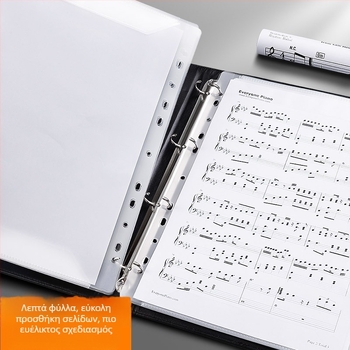 Everyone Piano
Λεπτά φύλλα, εύκολη
προσθήκη σελίδων, πιο
ευέλικτος σχεδιασμός